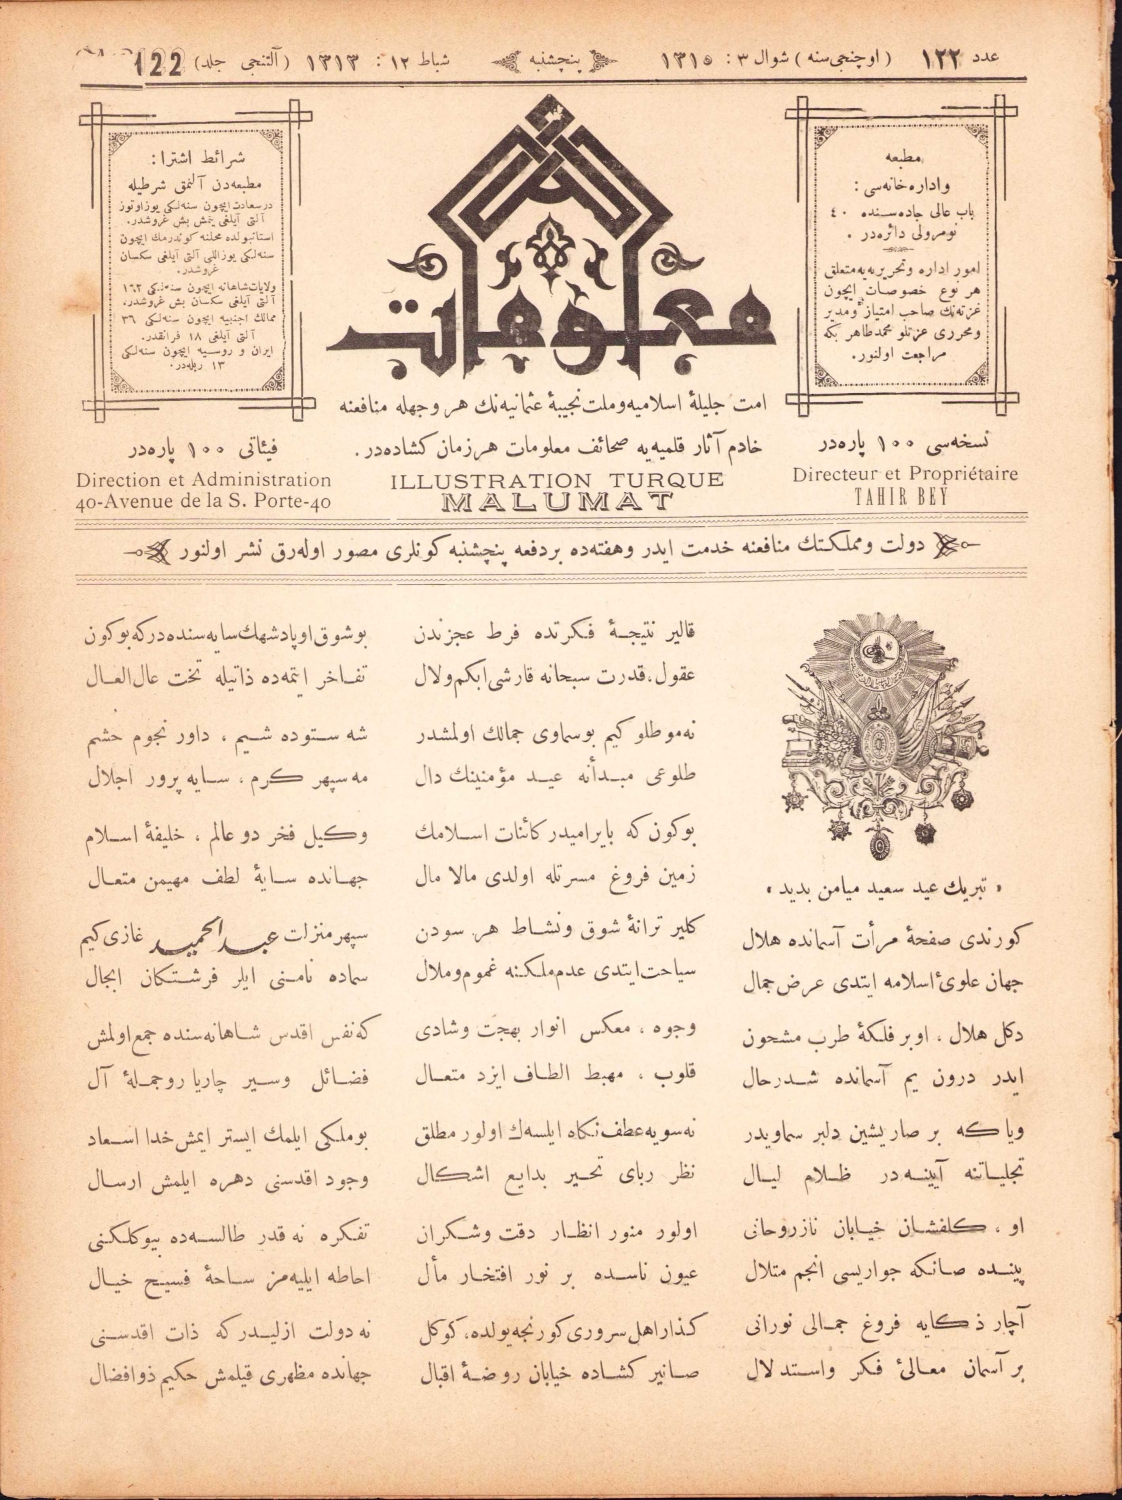 عدد ١٢٢ (اوچنجی سنه) شوال ٣: ١٣١٥ پنچشنبه شباط ١٢: ١٣١٣ (آلتنجی جلد) 122
مطبعه
واداره خانه‌سی:
باب عالی جاده‌سنده ٤٠
نومرولی دائره‌در.
امور اداره وتحریریه‌یه متعلق
هر نوع خصوصات ایچون
غزته‌نك صاحب امتیاز ومدیر
ومحرری عزتلو محمد طاهر بكه
مراجعت اولنور.
نسخه‌سی ١٠٠ پاره‌در
Directeur et Propriétaire
TAHIR BEY
معلومات
امت جلیلهٔ اسلامیه وملت نجیبهٔ عثمانیه‌نك هر وجهله منافعنه
خادم آثار قلمیه‌یه صحائف معلومات هر زمان كشاده‌در.
ILLUSTRATION TURQUE
MALUMAT
شرائط اشترا:
مطبعه‌دن آلنمق شرطیله
درسعادت ایچون سنه‌لكی یوز اوتوز
آلتی آیلغی یتمش بش غروشدر.
استانبولده محلنه كوندرمك ایچون
سنه‌لكی یوز اللی آلتی آیلغی سكسان
غروشدر.
ولایات شاهانه ایچون سنه‌لكی ١٦٢
آلتی آیلغی سكسان بش غروشدر.
ممالك اجنبیه ایچون سنه‌لكی ٣٦
آلتی آیلغی ١٨ فرانقدر.
ایران و روسیه ایچون سنه‌لكی
١٣ ربله‌در.
فیئاتی ١٠٠ پاره‌در
Direction et Administration
40-Avenue de la S. Porte-40
دولت ومملكتك منافعنه خدمت ایدر وهفته‌ده بر دفعه پنچشنبه كونلری مصور اوله‌رق نشر اولنور
« تبریك عید سعید میامن بدید »
كورندی صفحهٔ مرأت آسمانده هلال
جهان علویٔ اسلامه ایتدی عرض جمال
دكل هلال، او بر فلكهٔ طرب مشحون
ایدر درون یم آسمانده شدرحال
ویا كه بر صاریشین دلبر سماویدر
تجلیاتنه آیینه‌در ظلام لیال
او، كلفشان خیابان نازروحانی
پینده صانكه جواریسی انجم متلال
آچار ذكایه فروغ جمالی نورانی
بر آسمان معالیٔ فكر واستدلال
قالیر نتیجهٔ فكرتده فرط عجزندن
عقول، قدرت سبحانه قارشی ابكم ولال
نه موطلو كیم بوسماوی جمالك اولمشدر
طلوعی مبدأنه عید مؤمنینك دال
بوكون كه بایرامیدر كائنات اسلامك
زمین فروغ مسرتله اولدی مالا مال
كلیر ترانهٔ شوق ونشاط هر سودن
سیاحت ایتدی عدم ملكنه غموم وملال
وجوه، معكس انوار بهجت وشادی
قلوب، مهبط الطاف ایزد متعال
نه سویه عطف نكاه ایلسه‌ك اولور مطلق
نظر ربای تحیر بدایع اشكال
اولور منور انظار دقت وشكران
عیون ناسده بر نور افتخار مأل
كذار اهل سروری كورنجه یولده، كوكل
صانیر كشاده خیابان روضهٔ اقبال
بوشوق او پادشهك سایه‌سنده‌در كه بوكون
تفاخر ایتمه‌ده ذاتیله تخت عال العال
شه ستوده شیم، داور نجوم حشم
مه سپهر كرم، سایه پرور اجلال
وكیل فخر دو عالم، خلیفهٔ اسلام
جهانده سایهٔ لطف مهیمن متعال
سپهر منزلت عبدالحمید غازی كیم
سماده نامنی ایلر فرشتكان ابجال
كه نفس اقدس شاهانه‌سنده جمع اولمش
فضائل وسیر چاریار وجملهٔ آل
بوملكی ایلمك ایستر ایمش خدا اسعاد
وجود اقدسنی دهره ایلمش ارسال
تفكره نه قدر طالسه‌ده بیوكلكنی
احاطه ایلیه‌مز ساحهٔ فسیح خیال
نه دولت ازلیدر كه ذات اقدسنی
جهانده مظهری قیلمش حكیم ذوافضال